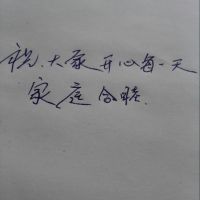 祝.大家开心每一天
家庭合睦.